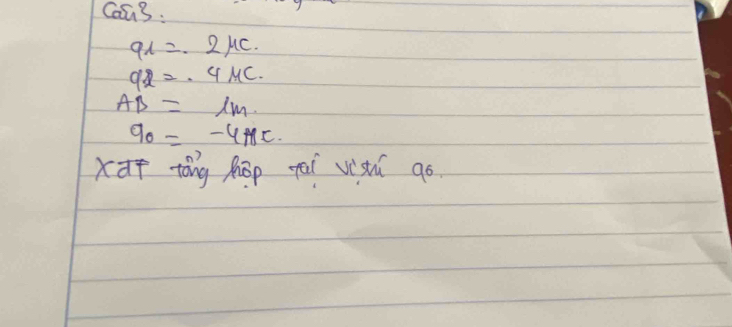 Câu 3:
q1 = 2 μC.
q2 = 4 μC.
AB = 1m.
q0 = -4 μC.
XĐF tổng hợp tại vị trí q0.